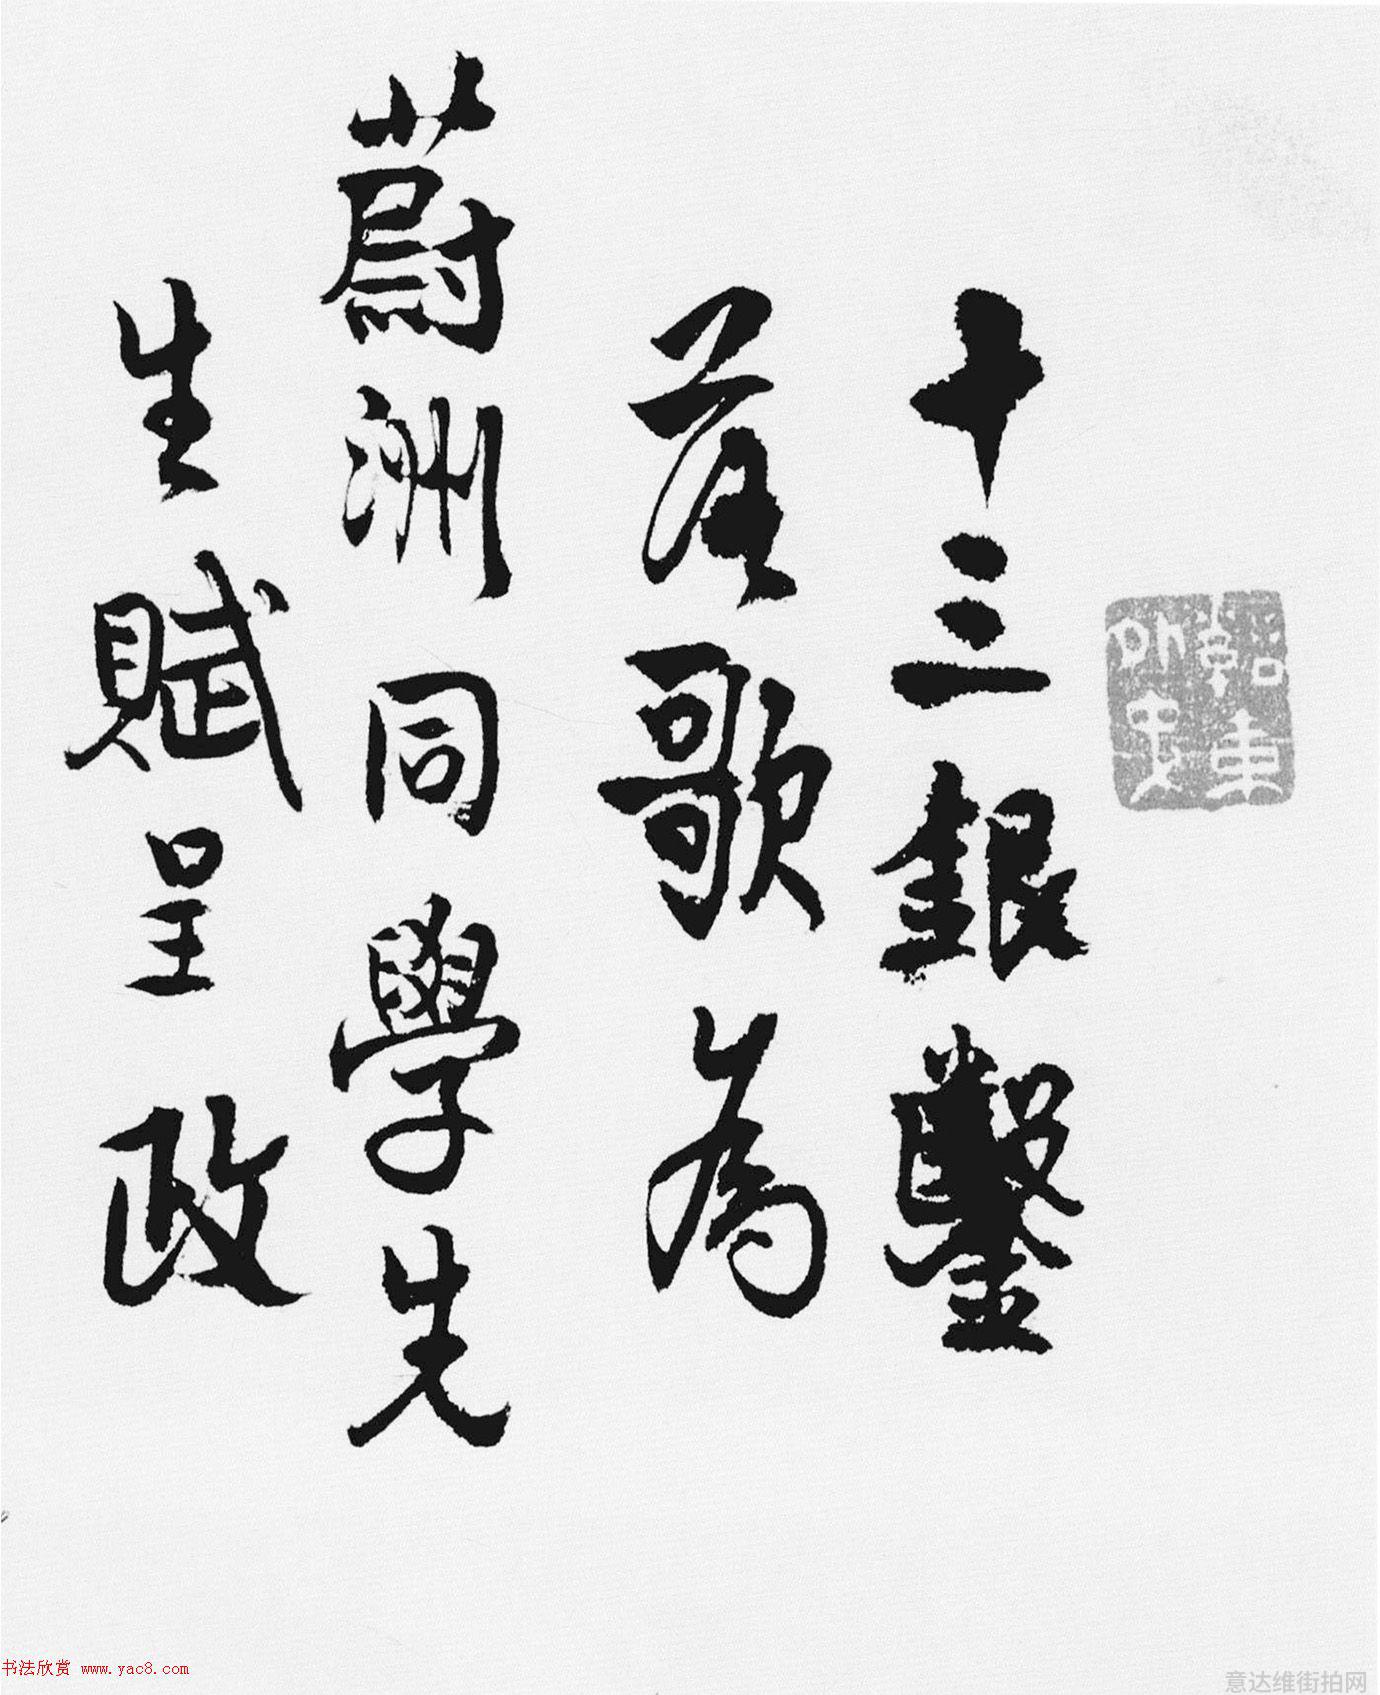 十三銀鑿
落歌為
蔚洲同學先
生賦呈政
书法欣赏 www.yac8.com
意达维街拍网